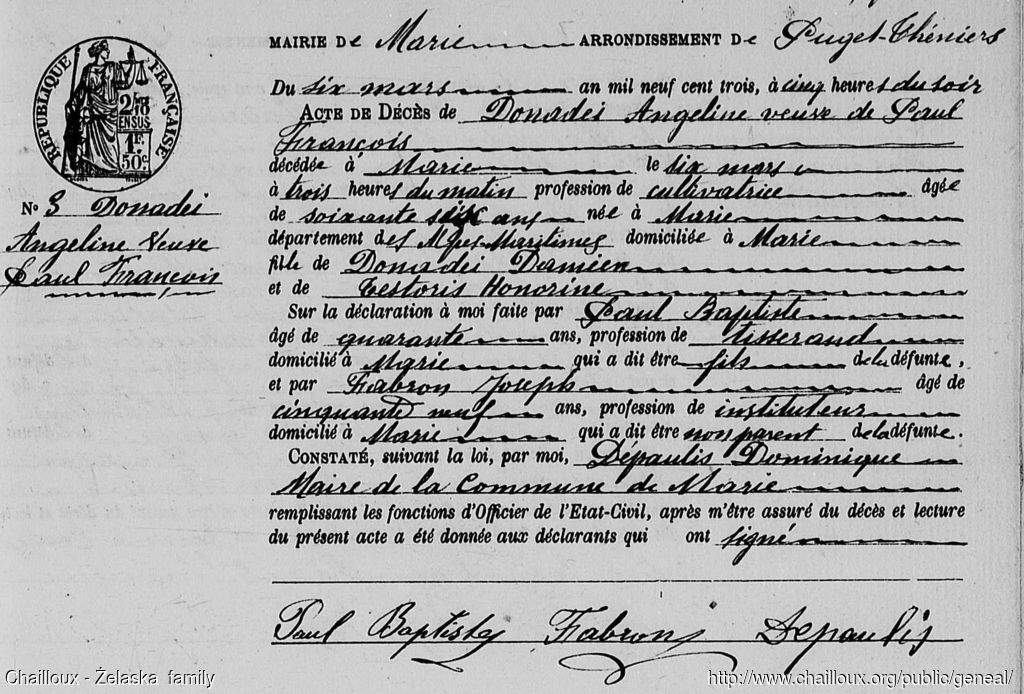 MAIRIE De Marie ARRONDISSEMENT De Puget-Théniers
RÉPUBLIQUE FRANÇAISE
2/10
EN SUS
1F.
50c.
Du six mars an mil neuf cent trois, à cinq heures du soir
ACTE DE DÉCÈS de Donadei Angeline veuve de Paul
François
décédée à Marie le six mars
à trois heures du matin profession de cultivatrice âgée
de soixante six ans née à Marie
département des Alpes-Maritimes domiciliée à Marie
fille de Donadei Damien
et de Testoris Honorine
Sur la déclaration à moi faite par Paul Baptiste
âgé de quarante ans, profession de tisserand
domicilié à Marie qui a dit être fils de la défunte,
et par Fabron Joseph âgé de
cinquante neuf ans, profession de instituteur
domicilié à Marie qui a dit être non parent de la défunte.
CONSTATÉ, suivant la loi, par moi, Dépaulis Dominique
Maire de la Commune de Marie
remplissant les fonctions d'Officier de l'Etat-Civil, après m'être assuré du décès et lecture
du présent acte a été donnée aux déclarants qui ont signé
No 3 Donadei
Angeline Veuve
Paul François
Paul Baptiste Fabron Depaulis
Chailloux - Żelaska family
http://www.chailloux.org/public/geneal/